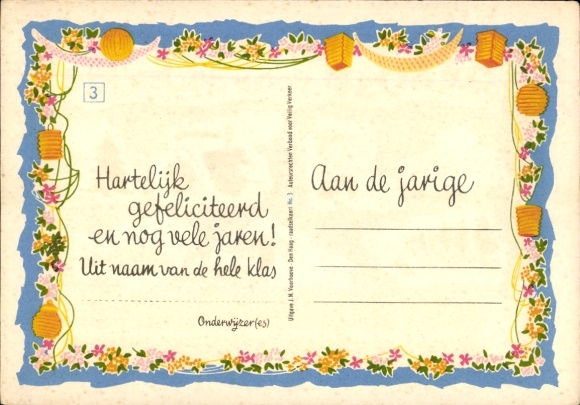 3
Hartelijk
gefeliciteerd
en nog vele jaren!
Uit naam van de hele klas
Onderwijzer(es)
Uitgave J. N. Voorhoeve - Den Haag (raadselkaart No. 3 Auteursrechten Verbond voor Veilig Verkeer
Aan de jarige